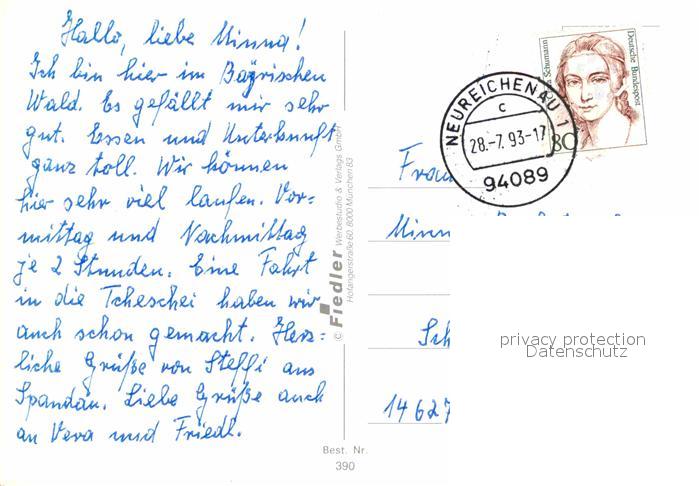 Hallo, liebe Minna!
Ich bin hier im Bayrischen
Wald. Es gefällt mir sehr
gut. Essen und Unterkunft
ganz toll. Wir können
hier sehr viel laufen. Vor=
mittag und Nachmittag
je 2 Stunden. Eine Fahrt
in die Tcheschei haben wir
auch schon gemacht. Herz=
liche Grüße von Steffi aus
Spandau. Liebe Grüße auch
an Vera und Friedl.
© Fiedler Werbestudio & Verlags GmbH
Hofangerstraße 60, 8000 München 83
Best. Nr.
390
NEUREICHENAU 1
c
28.-7.93-17
94089
Schumann
Deutsche Bundespost
80
Frau
Minn
Sch
14627
privacy protection
Datenschutz